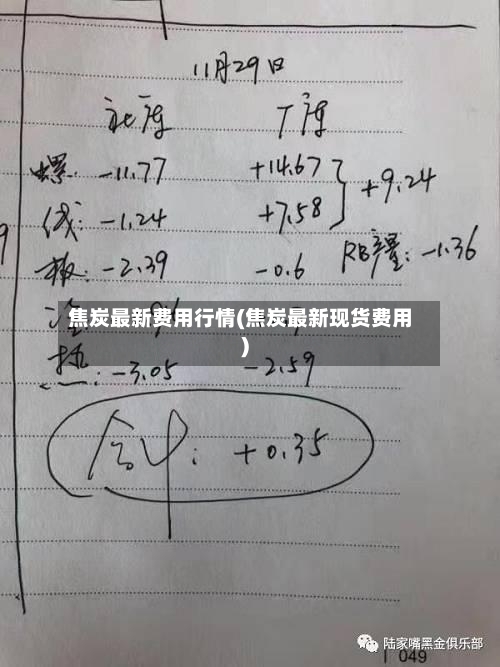 11月29日
社库 厂库
螺: -11.77 +14.67 } +9.24
线: -1.24 +7.58
RB产量: -1.36
板: -2.39 -0.6
焦炭最新费用行情(焦炭最新现货费用
)
热: -3.05 -2.59
合计: +0.35
陆家嘴黑金俱乐部
049